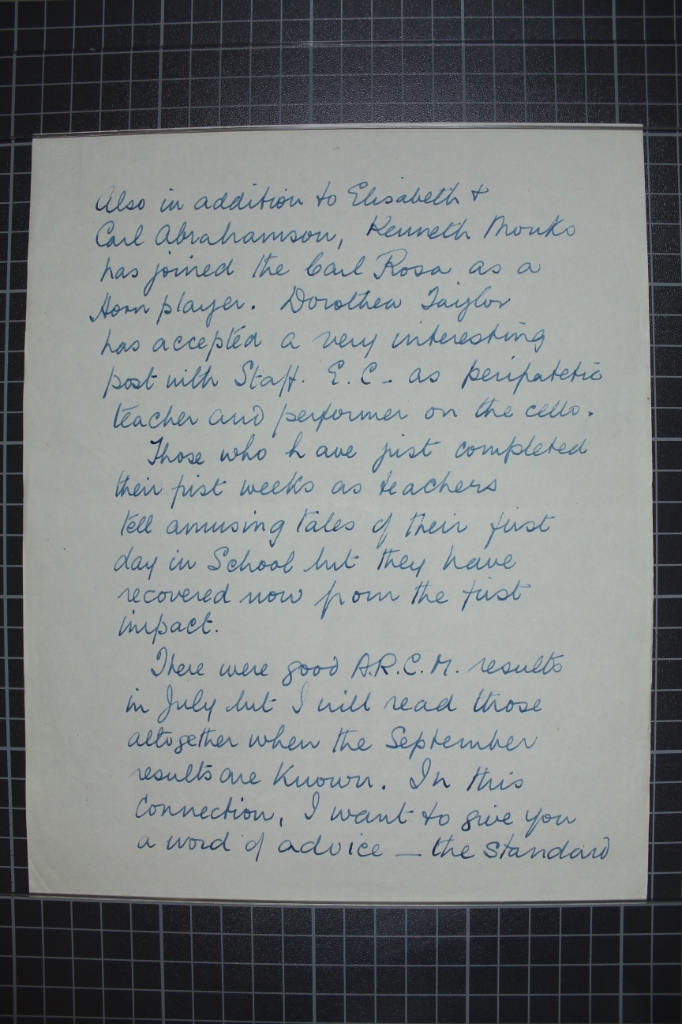 Also in addition to Elisabeth &
Carl Abrahamson, Kenneth Monks
has joined the Carl Rosa as a
Horn player. Dorothea Taylor
has accepted a very interesting
post with Staff. E.C. as peripatetic
teacher and performer on the cello.
Those who have just completed
their first weeks as teachers
tell amusing tales of their first
day in School but they have
recovered now from the first
impact.
There were good A.R.C.M. results
in July but I will read those
altogether when the September
results are known. In this
connection, I want to give you
a word of advice – the standard